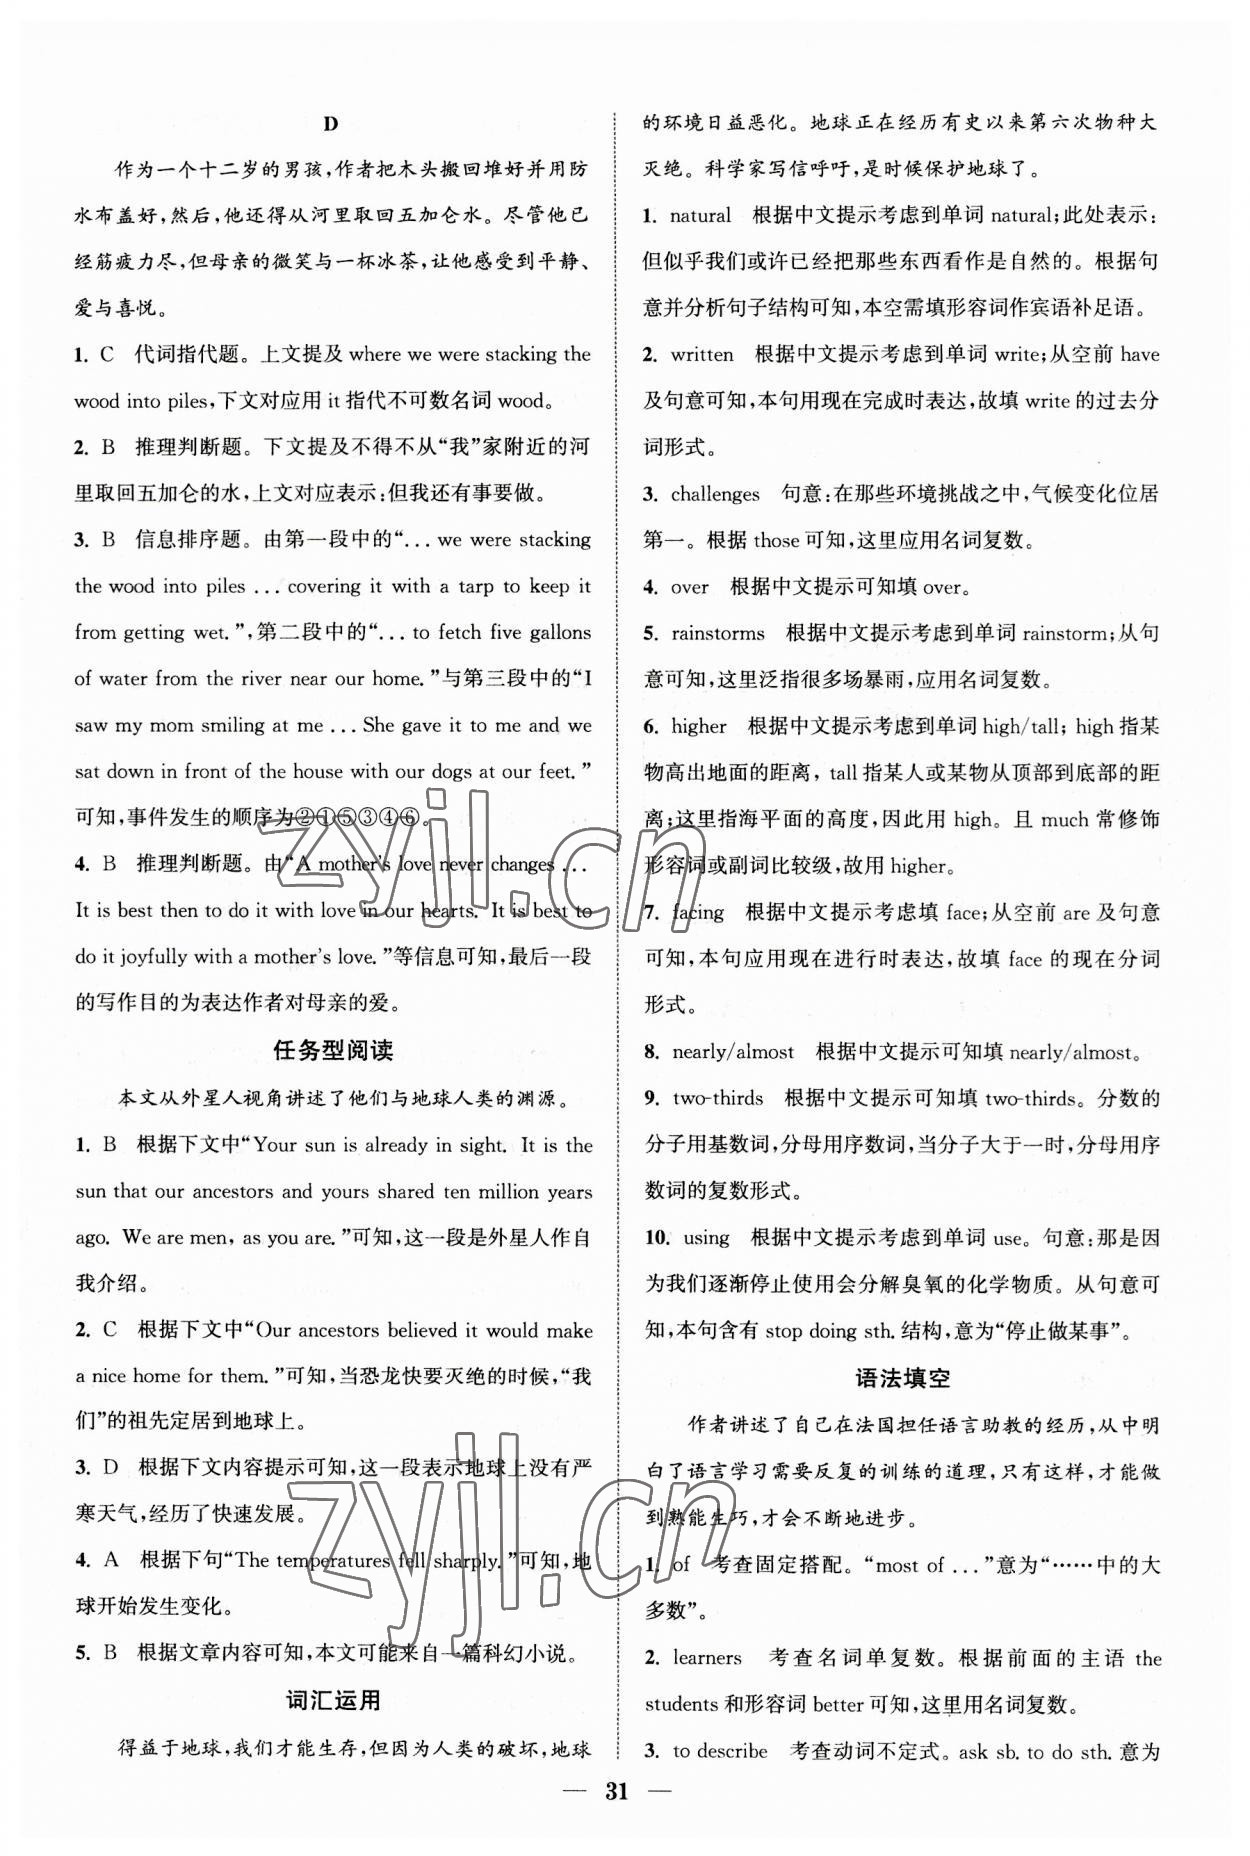 D
作为一个十二岁的男孩,作者把木头搬回堆好并用防
水布盖好,然后,他还得从河里取回五加仑水。尽管他已
经筋疲力尽,但母亲的微笑与一杯冰茶,让他感受到平静、
爱与喜悦。
1. C 代词指代题。上文提及 where we were stacking the
wood into piles,下文对应用 it 指代不可数名词 wood。
2. B 推理判断题。下文提及不得不从“我”家附近的河
里取回五加仑的水,上文对应表示:但我还有事要做。
3. B 信息排序题。由第一段中的“... we were stacking
the wood into piles ... covering it with a tarp to keep it
from getting wet.”,第二段中的“... to fetch five gallons
of water from the river near our home.”与第三段中的“I
saw my mom smiling at me ... She gave it to me and we
sat down in front of the house with our dogs at our feet.”
可知,事件发生的顺序为②①⑤③④⑥。
4. B 推理判断题。由“A mother's love never changes ...
It is best then to do it with love in our hearts. It is best to
do it joyfully with a mother's love.”等信息可知,最后一段
的写作目的为表达作者对母亲的爱。
任务型阅读
本文从外星人视角讲述了他们与地球人类的渊源。
1. B 根据下文中“Your sun is already in sight. It is the
sun that our ancestors and yours shared ten million years
ago. We are men, as you are.”可知,这一段是外星人作自
我介绍。
2. C 根据下文中“Our ancestors believed it would make
a nice home for them.”可知,当恐龙快要灭绝的时候,“我
们”的祖先定居到地球上。
3. D 根据下文内容提示可知,这一段表示地球上没有严
寒天气,经历了快速发展。
4. A 根据下句“The temperatures fell sharply.”可知,地
球开始发生变化。
5. B 根据文章内容可知,本文可能来自一篇科幻小说。
词汇运用
得益于地球,我们才能生存,但因为人类的破坏,地球
的环境日益恶化。地球正在经历有史以来第六次物种大
灭绝。科学家写信呼吁,是时候保护地球了。
1. natural 根据中文提示考虑到单词 natural;此处表示:
但似乎我们或许已经把那些东西看作是自然的。根据句
意并分析句子结构可知,本空需填形容词作宾语补足语。
2. written 根据中文提示考虑到单词 write;从空前 have
及句意可知,本句用现在完成时表达,故填 write 的过去分
词形式。
3. challenges 句意:在那些环境挑战之中,气候变化位居
第一。根据 those 可知,这里应用名词复数。
4. over 根据中文提示可知填 over。
5. rainstorms 根据中文提示考虑到单词 rainstorm;从句
意可知,这里泛指很多场暴雨,应用名词复数。
6. higher 根据中文提示考虑到单词 high/tall; high 指某
物高出地面的距离, tall 指某人或某物从顶部到底部的距
离;这里指海平面的高度,因此用 high。且 much 常修饰
形容词或副词比较级,故用 higher。
7. facing 根据中文提示考虑填 face;从空前 are 及句意
可知,本句应用现在进行时表达,故填 face 的现在分词
形式。
8. nearly/almost 根据中文提示可知填 nearly/almost。
9. two-thirds 根据中文提示可知填 two-thirds。分数的
分子用基数词,分母用序数词,当分子大于一时,分母用序
数词的复数形式。
10. using 根据中文提示考虑到单词 use。句意:那是因
为我们逐渐停止使用会分解臭氧的化学物质。从句意可
知,本句含有 stop doing sth. 结构,意为“停止做某事”。
语法填空
作者讲述了自己在法国担任语言助教的经历,从中明
白了语言学习需要反复的训练的道理,只有这样,才能做
到熟能生巧,才会不断地进步。
1. of 考查固定搭配。“most of ...”意为“……中的大
多数”。
2. learners 考查名词单复数。根据前面的主语 the
students 和形容词 better 可知,这里用名词复数。
3. to describe 考查动词不定式。ask sb. to do sth. 意为
— 31 —
zyjl.cn
zyjl.cn